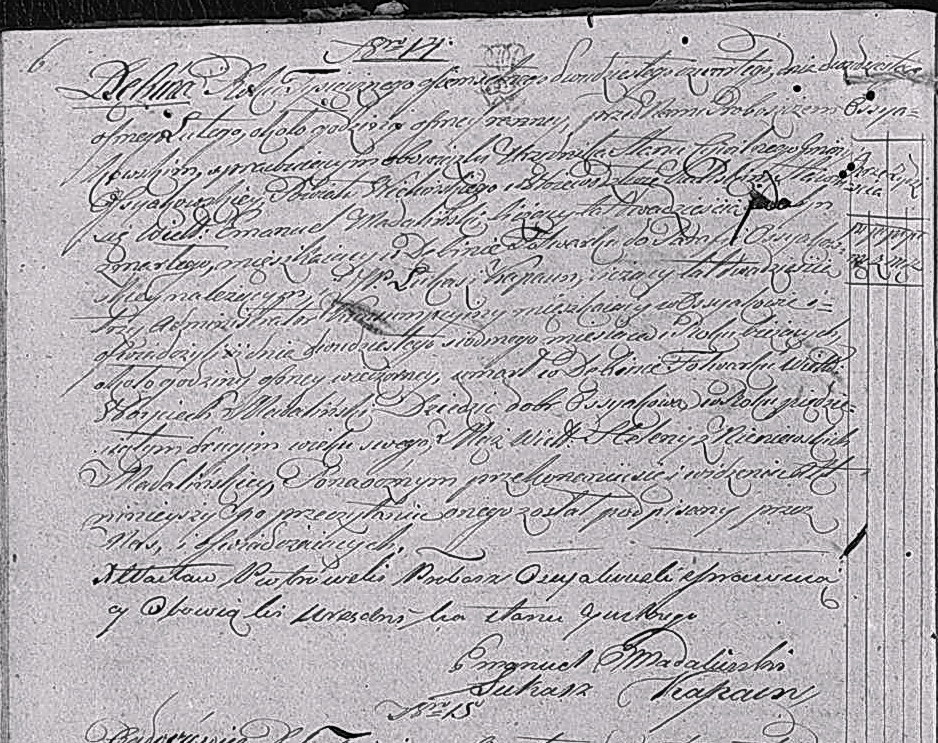 6
Nro 14.
Dębina Roku Tysiącznego ośmsetnego dwudziestego czwartego, dnia dwudziestego
ósmego Lutego, o godzinie ósmey ranney, przed Nami Proboszczem Ossya-
kowskim, sprawuiącym obowiązki Urzędnika Stanu Cywilnego Gminy
Ossyakowskiey, Powiatu Wieluńskiego w Woiewództwie Kaliskim, Stawił
się Wielm. Emanuel Madaliński liczący lat dwadzieścia syn
zmarłego, mieszkaiący w Dębinie Folwarku do Parafii Ossyakow-
skiey należącym, i JP. Łukasz Kapaun, liczący lat dwadzieścia
trzy, Administrator mieszkaiący w Ossyakowie i
oświadczyli iż dnia dwudziestego siódmego miesiąca i Roku bieżących,
około godziny ósmey wieczorney, umarł w Dębinie Folwarku Wielm.
Woyciech Madaliński Dziedzic dóbr Ossyakowa w Roku pięćdzie-
siątym drugim wieku swego, Mąż Wielm. Heleny z Kiniewskich
Madalińskiey, Po naocznym przekonaniu się i widzeniu Akt
ninieyszy po przeczytaniu onego został podpisany przez
Nas, i Oświadczaiących.
X Wacław Piotrowski Probosz Ossyakowski sprawuią
cy Obowiązki urzędnika stanu Cywilnego
Emanuel Madaliński
Łukasz Kapaun
Nro 15